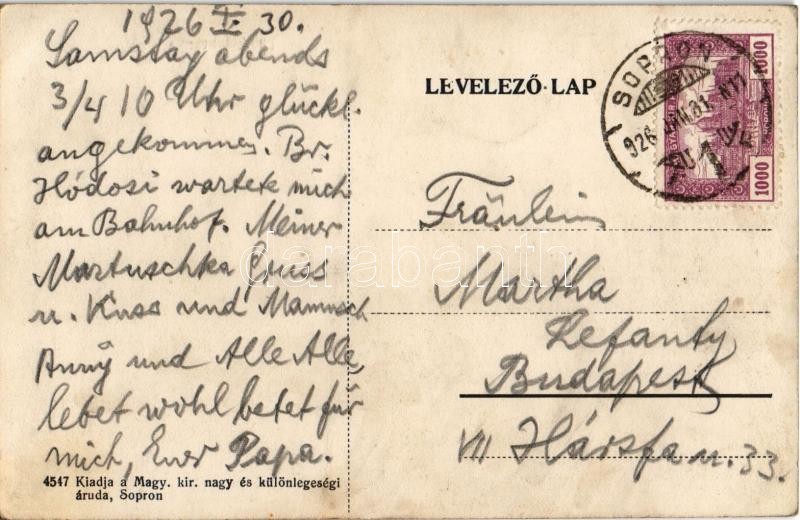 1926 I. 30.
Samstag abends
3/4 10 Uhr glückl.
angekommen. Br.
Hódosi wartete mich
am Bahnhof. Meiner
Martuschka Gruss
u. Kuss und Mamusch
Anny und Alle Alle,
lebet wohl betet für
mich, Euer Papa.
4547 Kiadja a Magy. kir. nagy és különlegeségi
áruda, Sopron
LEVELEZŐ-LAP
SOPRON 1
926 JAN. 31. N11
1000
1000
Fräulein
Martha
Lefanty
Budapest
VII Hársfa u. 33.
darabanth